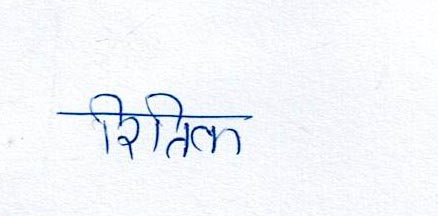 रितिक